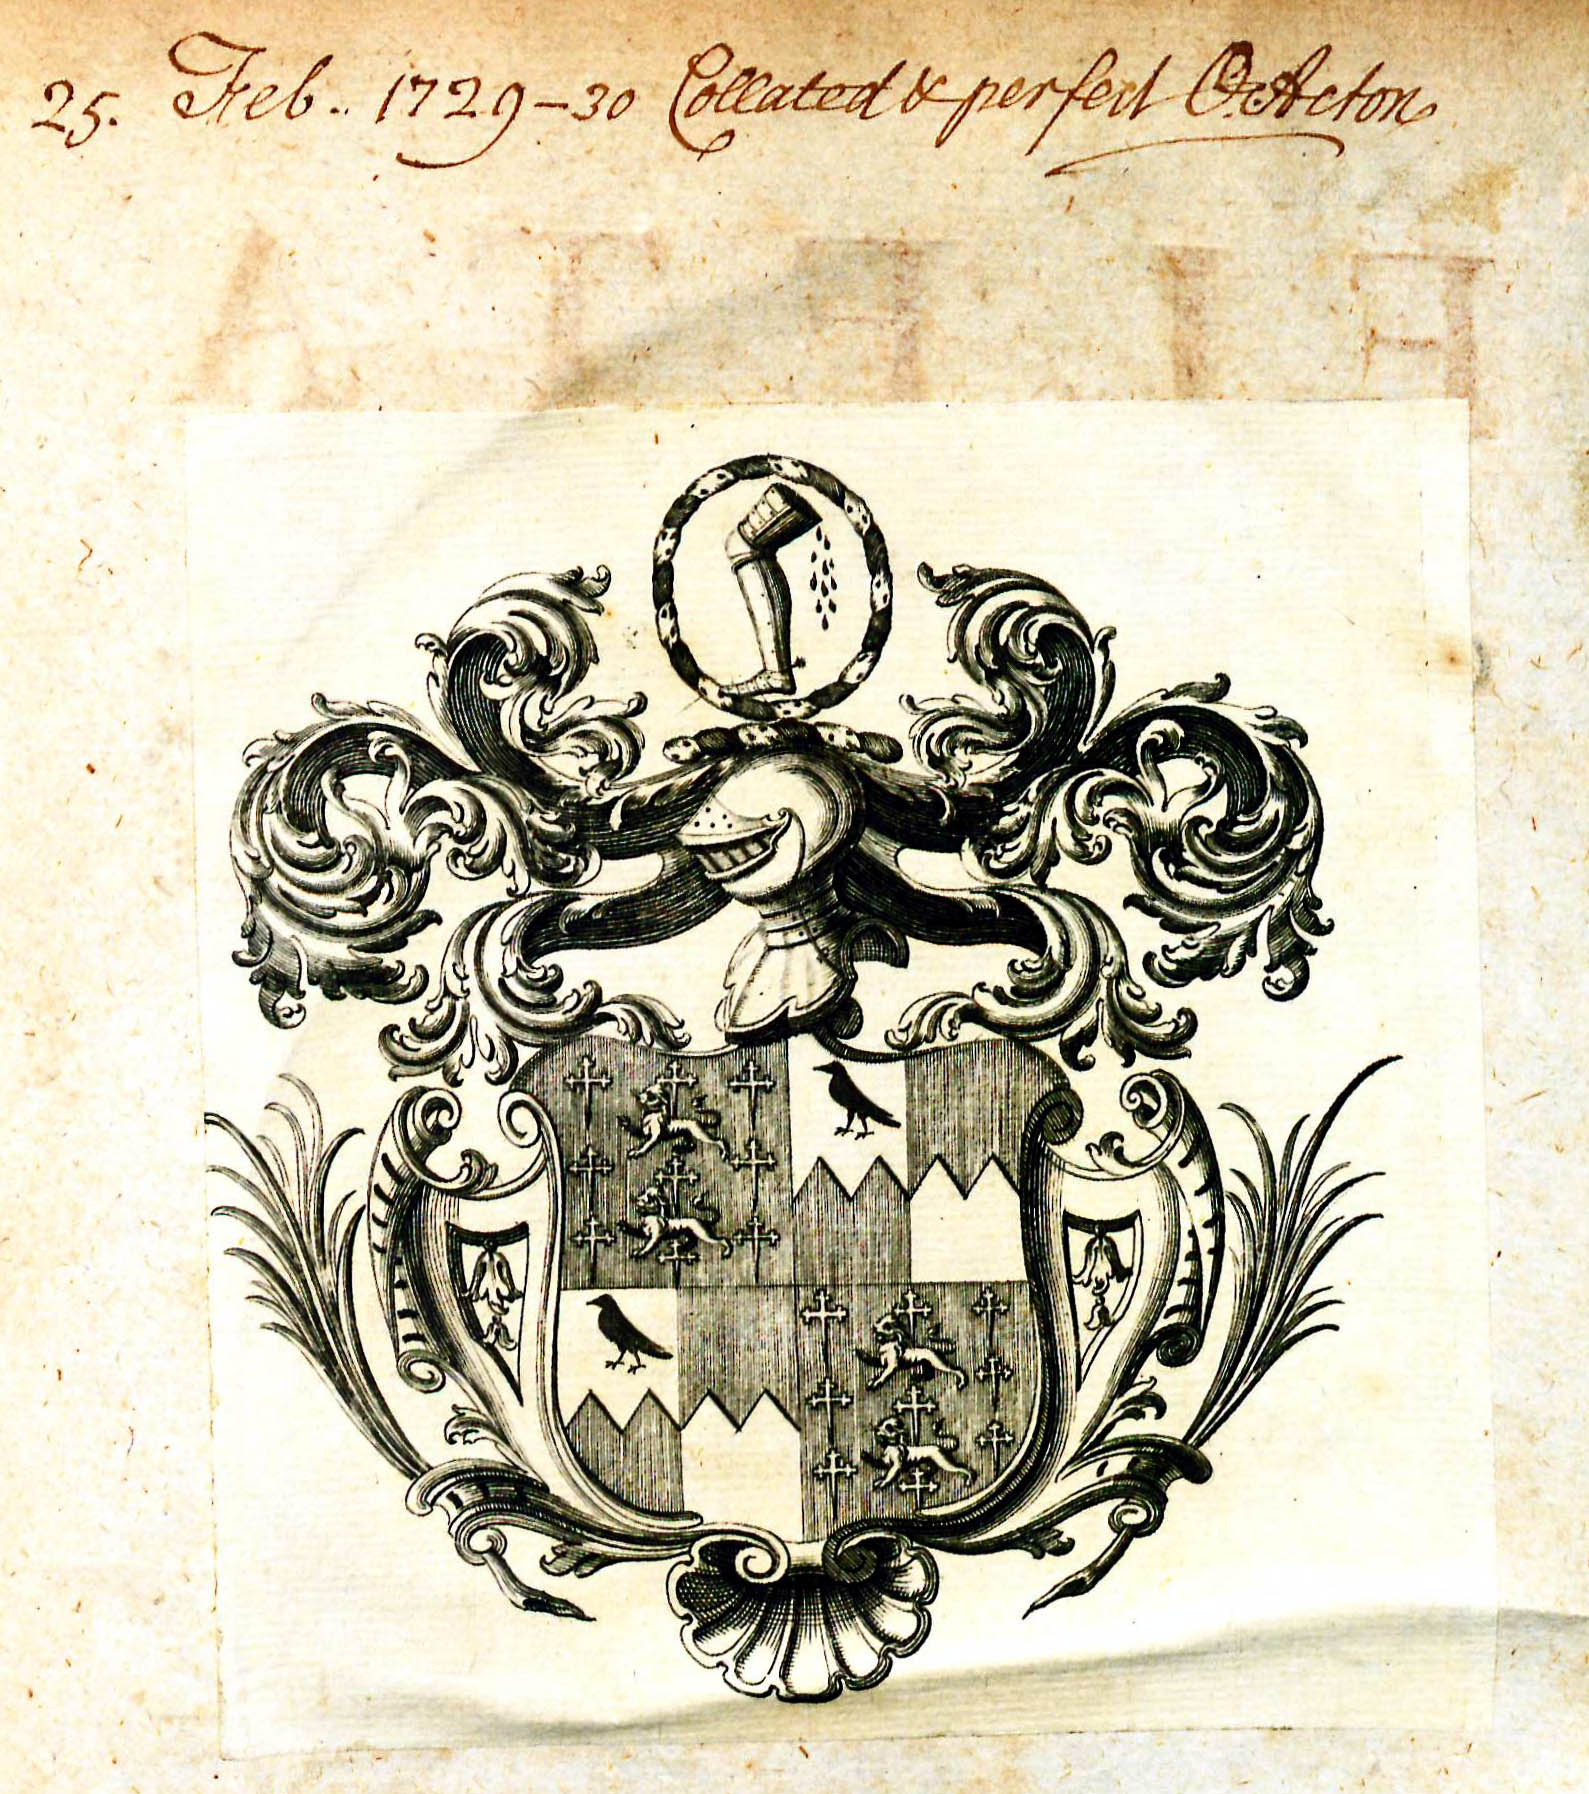 25. Feb. 1729-30 Collated & perfect O. Acton